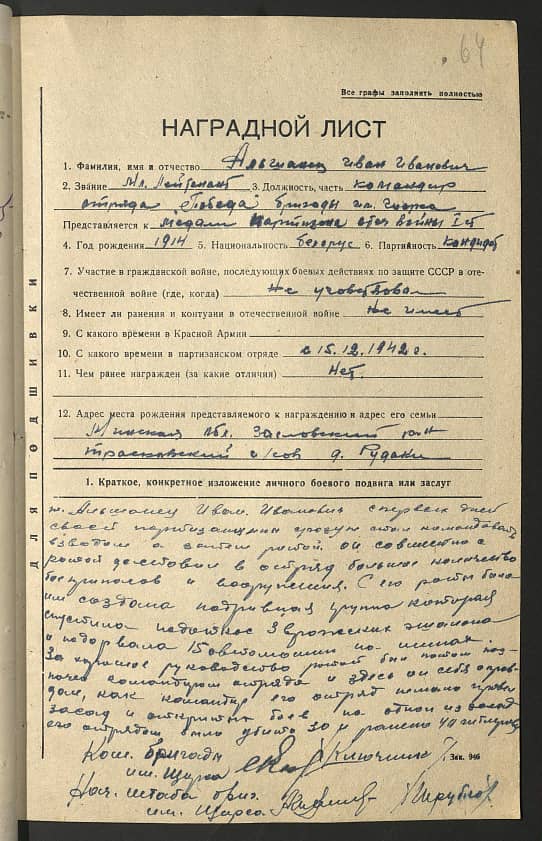 64
Все графы заполнять полностью
НАГРАДНОЙ ЛИСТ
1. Фамилия, имя и отчество Альшанец Иван Иванович
2. Звание Мл. Лейтенант 3. Должность, часть командир
отряда "Победа" бригады им. Щорса
Представляется к медали Партизана отеч войны I ст
4. Год рождения 1914 5. Национальность белорус 6. Партийность Кандидат
7. Участие в гражданской войне, последующих боевых действиях по защите СССР в оте-
чественной войне (где, когда) не участвовал
8. Имеет ли ранения и контузии в отечественной войне не имеет
9. С какого времени в Красной Армии
10. С какого времени в партизанском отряде с 15.12.1942 г.
11. Чем ранее награжден (за какие отличия) Нет.
12. Адрес места рождения представляемого к награждению и адрес его семьи
Минская обл. Засловский р-н
с/сов д. Рудаки
ДЛЯ ПОДШИВКИ
1. Краткое, конкретное изложение личного боевого подвига или заслуг
т. Альшанец Иван Иванович с первых дней
своей партизанщины стал командовать
взводом а затем ротой. он совместно с
ротой доставал в отряд большое количество
боеприпасов и вооружения. С его роты была
им создана подрывная группа которая
спустила под откос 3 вражеских эшалона
и подорвала 15 автомашин на минах.
За хорошее руководство ротой был потом наз-
начен командиром отряда и здесь он себя оправ-
дал, как командир его отряд немало провел
засад и открытых боев на одной из засад
его отрядом было убито 30 и ранено 40 гитлеровц
Ком. бригады
им. Щорса Ключник
Зак. 946
Нач. штаба бриг.
им. Щорса